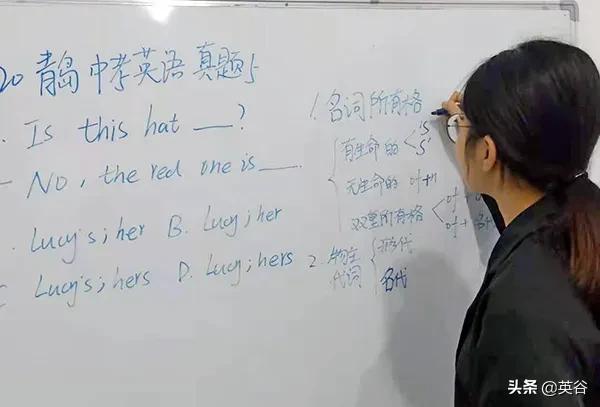 20 青岛中考英语真题5
. Is this hat ___?
- No, the red one is ___.
. Lucy's; her B. Lucy; her
C Lucy's; hers D. Lucy; hers
1. 名词所有格
有生命的 's
s'
无生命的 of+n
双重所有格 of +
of +
2. 物主代词 形代
名代
头条 @英谷